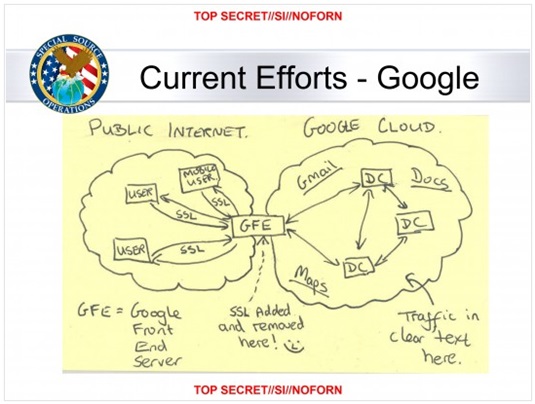 TOP SECRET//SI//NOFORN
SPECIAL SOURCE
OPERATIONS
Current Efforts - Google
PUBLIC INTERNET.
GOOGLE CLOUD.
MOBILE
USER.
USER
SSL
SSL
USER
SSL
GFE
Gmail
DC
DOCS
DC
DC
Maps
GFE = Google
Front
End
Server
SSL Added
and removed
here!
Traffic in
clear text
here.
TOP SECRET//SI//NOFORN